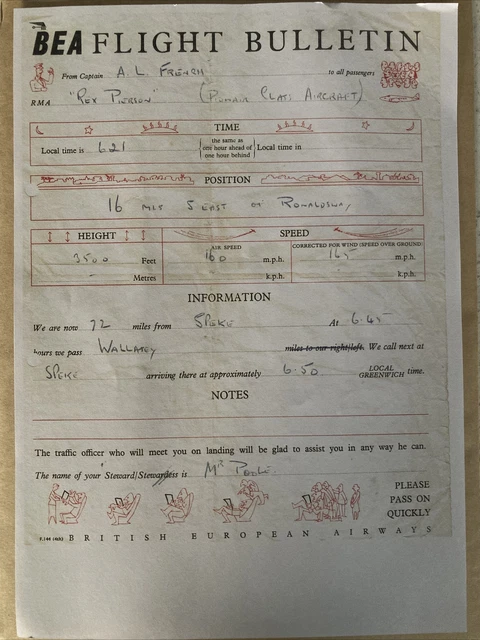 BEA FLIGHT BULLETIN
From Captain A. L. French to all passengers
RMA "Rex Pierson" (Pionair Class Aircraft)
TIME
Local time is 6.21 { the same as one hour ahead of one hour behind } Local time in
POSITION
16 mls S East of Ronaldsway
HEIGHT SPEED
AIR SPEED CORRECTED FOR WIND (SPEED OVER GROUND)
3500 Feet 160 m.p.h. 165 m.p.h.
- Metres k.p.h. k.p.h.
INFORMATION
We are now 72 miles from Speke At 6.45
hours we pass Wallasey miles to our right/left. We call next at
Speke arriving there at approximately 6.50 LOCAL GREENWICH time.
NOTES
The traffic officer who will meet you on landing will be glad to assist you in any way he can.
The name of your Steward/Stewardess is Mr Poole
PLEASE
PASS ON
QUICKLY
BRITISH EUROPEAN AIRWAYS